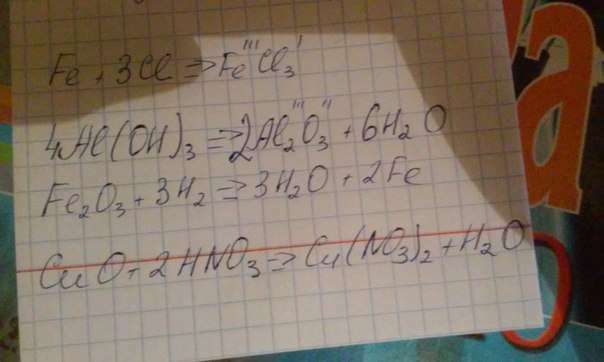 Fe + 3Cl => Fe^III Cl₃^I
4Al(OH)₃ => 2Al₂^III O₃^II + 6H₂O
Fe₂O₃ + 3H₂ => 3H₂O + 2Fe
CuO + 2HNO₃ => Cu(NO₃)₂ + H₂O